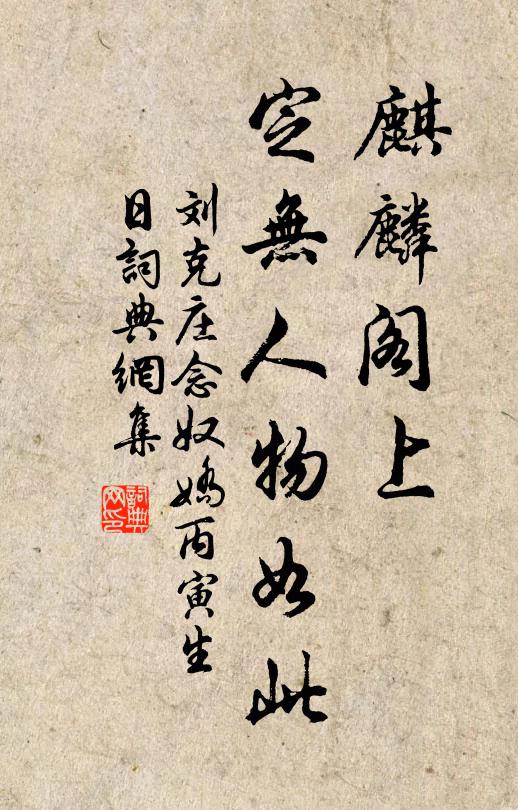 麒麟阁上
定無人物如此
刘克庄念奴嬌丙寅生
日詞典網集
詞典
网印